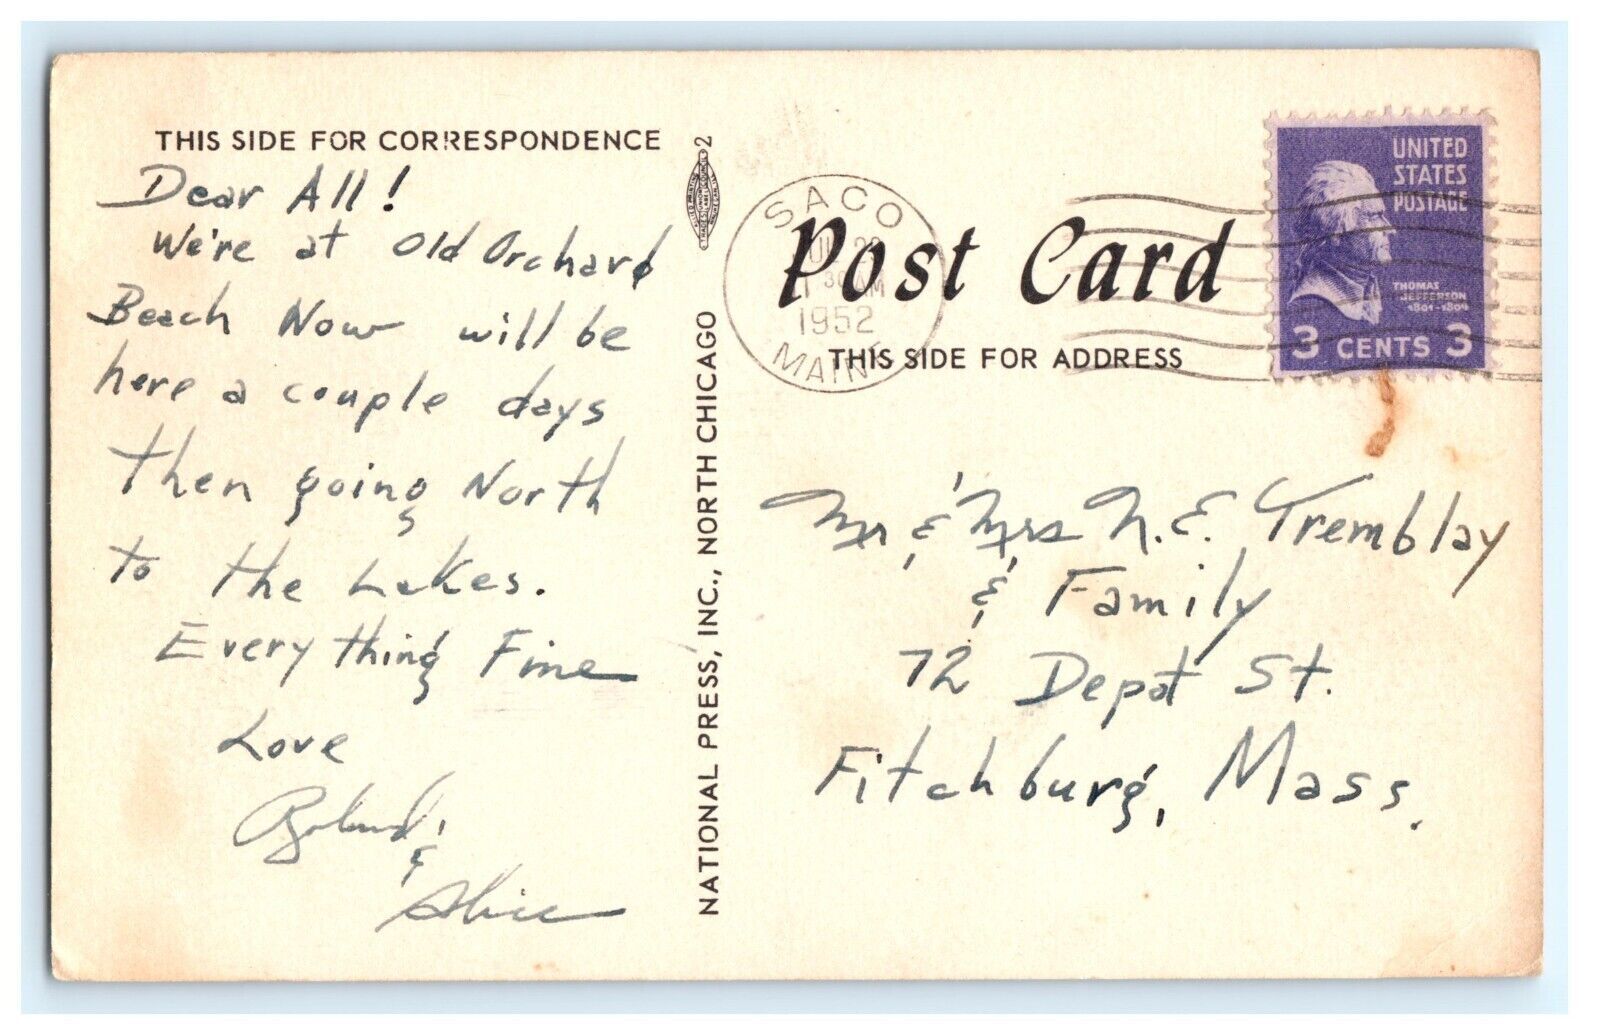 THIS SIDE FOR CORRESPONDENCE
Dear All!
We're at Old Orchard
Beach Now will be
here a couple days
then going North
to the Lakes.
Everything Fine
Love
Roland
&
Alice
2
NATIONAL PRESS, INC., NORTH CHICAGO
SACO
30 AM
1952
MAINE
Post Card
THIS SIDE FOR ADDRESS
UNITED
STATES
POSTAGE
THOMAS
JEFFERSON
1801-1809
3 CENTS 3
Mr & Mrs N.E. Tremblay
& Family
72 Depot St.
Fitchburg, Mass.